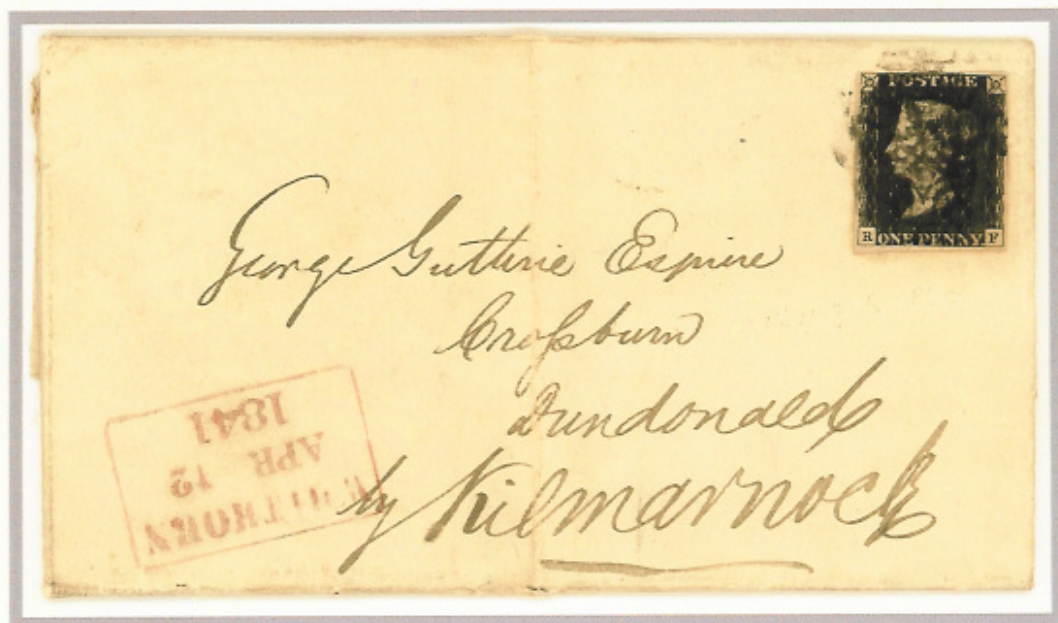 POSTAGE
R ONE PENNY F
George Guthrie Esquire
Croſsburn
Dundonald
by Kilmarnock
WHITHORN
APR 12
1841